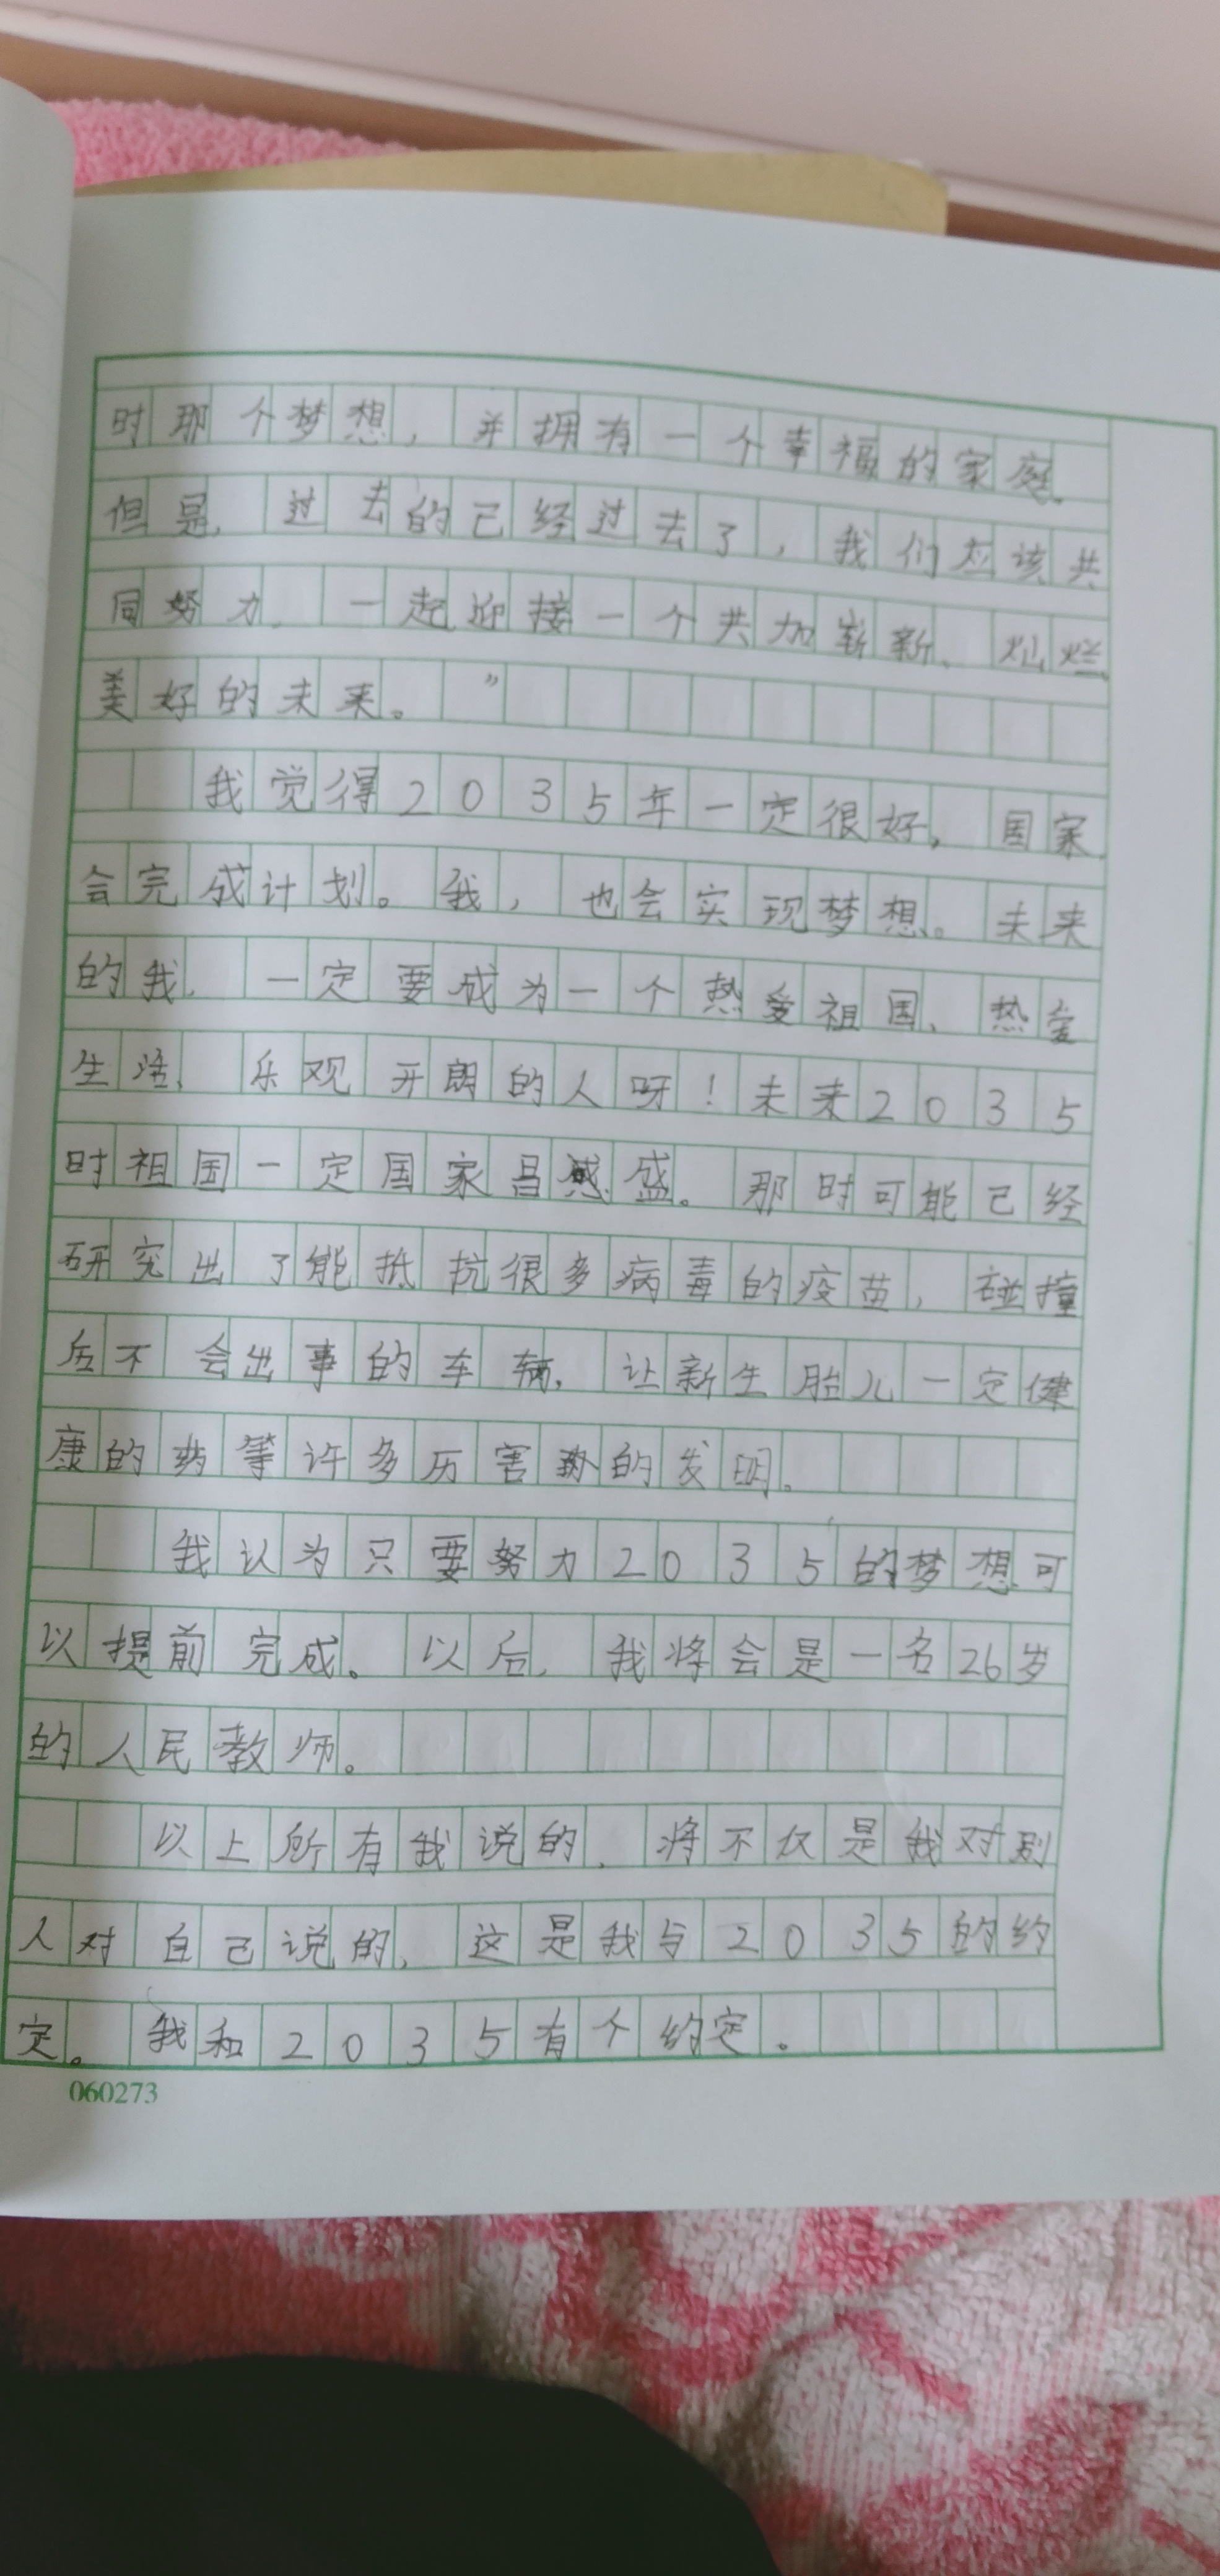 时那个梦想，并拥有一个幸福的家庭。
但是，过去的已经过去了，我们应该共
同努力，一起迎接一个共加崭新、灿烂、
美好的未来。”
我觉得2035年一定很好，国家
会完成计划。我，也会实现梦想。未来
的我，一定要成为一个热爱祖国、热爱
生活、乐观开朗的人呀！未来2035
时祖国一定国家昌盛。那时可能已经
研究出了能抵抗很多病毒的疫苗，碰撞
后不会出事的车辆，让新生胎儿一定健
康的药等许多历害的发明。
我认为只要努力2035的梦想可
以提前完成。以后，我将会是一名26岁
的人民教师。
以上所有我说的，将不仅是我对别
人对自己说的，这是我与2035的约
定。我和2035有个约定。
060273